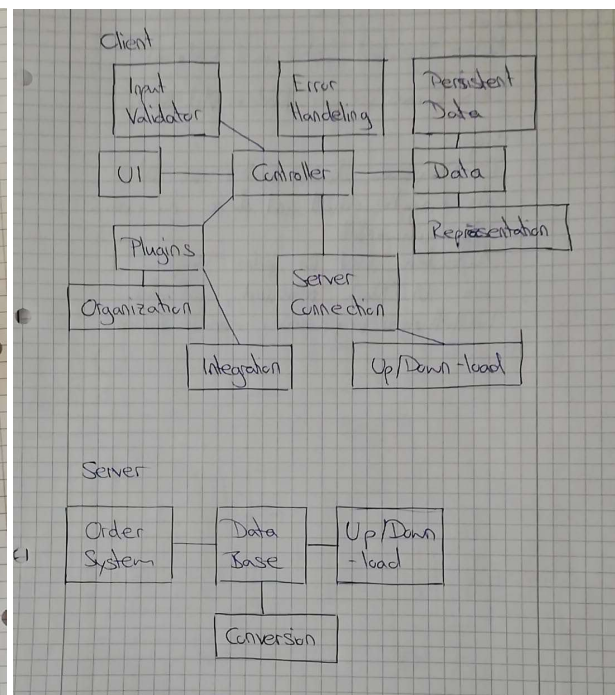 Client
Input
Validator
Error
Handeling
Persistent
Data
UI
Controller
Data
Representation
Plugins
Organization
Server
Connection
Integration
Up/Down-load
Server
Order
System
Data
Base
Up/Down
-load
Conversion